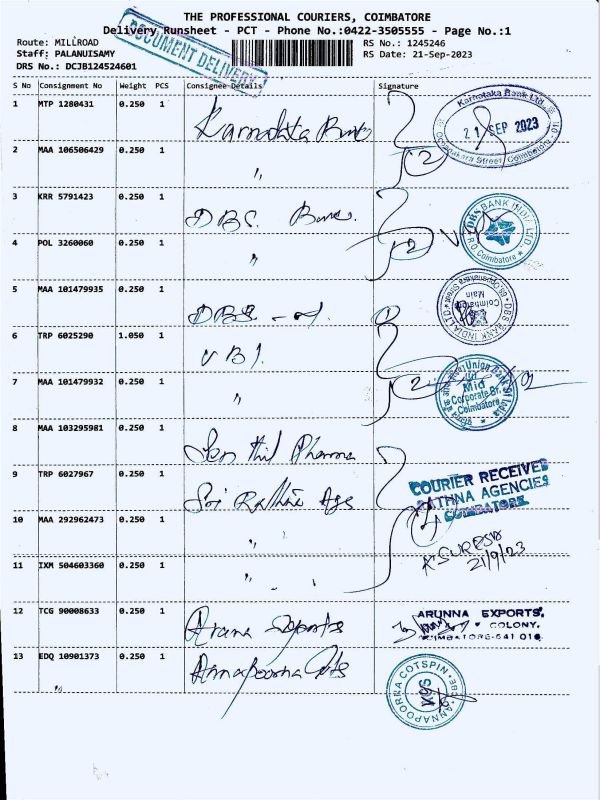 THE PROFESSIONAL COURIERS, COIMBATORE
Delivery Runsheet - PCT - Phone No.:0422-3505555 - Page No.:1
Route: MILLROAD
RS No.: 1245246
Staff: PALANUISAMY
RS Date: 21-Sep-2023
DRS No.: DCJB124524601
DOCUMENT DELIVERY
S No Consignment No Weight PCS Consignee Details Signature
1 MTP 1280431 0.250 1 Karnataka Bank
Karnataka Bank Ltd.,
21 SEP 2023
Oppanakara Street, Coimbatore
2 MAA 106506429 0.250 1 "
3 KRR 5791423 0.250 1 DBS Bank
DBS BANK INDIA LTD.
R.O Coimbatore
4 POL 3260060 0.250 1 "
5 MAA 101479935 0.250 1 DBS
DBS BANK INDIA LTD
Oppanakara Street
Coimbatore
Main
6 TRP 6025290 1.050 1 UBI
7 MAA 101479932 0.250 1 "
Union Bank of India
Mid
Corporate Br.
Coimbatore
8 MAA 103295981 0.250 1 Senthil Pharma
9 TRP 6027967 0.250 1 Sri Rathna Ags
COURIER RECEIVED
RATHNA AGENCIES
COIMBATORE
10 MAA 292962473 0.250 1 "
K SURESH
21/9/23
11 IXM 504603360 0.250 1 "
12 TCG 90008633 0.250 1 Aruna Exports
ARUNNA EXPORTS,
COLONY,
COIMBATORE-641 019
13 EDQ 10901373 0.250 1 Annapoorna Cots
ANNAPOORNA COTSPIN